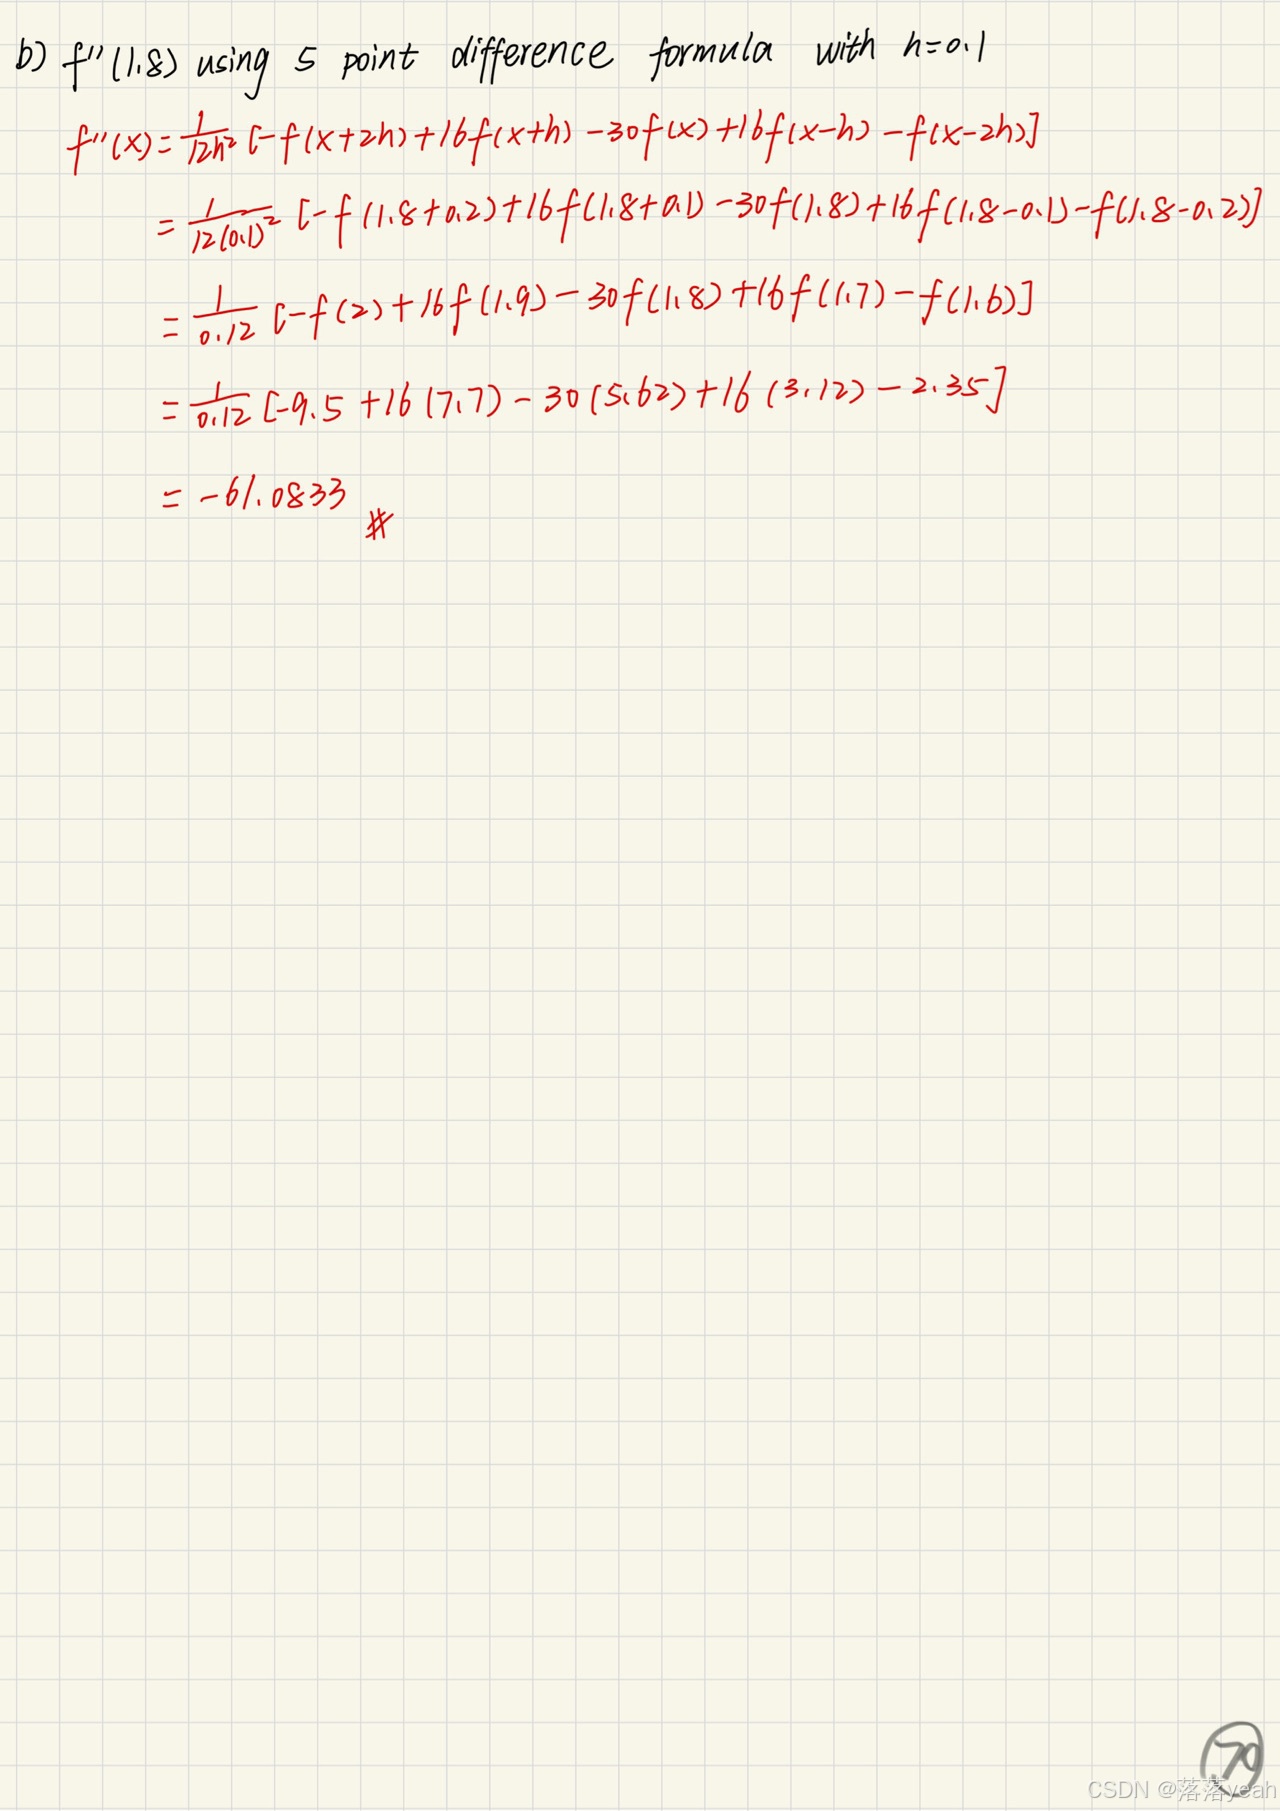 b) f''(1.8) using 5 point difference formula with h=0.1
f''(x) = 1/12h² [-f(x+2h)+16f(x+h)-30f(x)+16f(x-h)-f(x-2h)]
= 1/12(0.1)² [-f(1.8+0.2)+16f(1.8+0.1)-30f(1.8)+16f(1.8-0.1)-f(1.8-0.2)]
= 1/0.12 [-f(2)+16f(1.9)-30f(1.8)+16f(1.7)-f(1.6)]
= 1/0.12 [-9.5+16(7.7)-30(5.62)+16(3.12)-2.35]
= -61.0833 #
70
CSDN @落落yeah